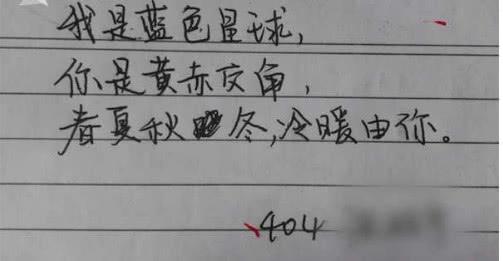 我是蓝色星球,
你是黄赤交角,
春夏秋冬,冷暖由你。
404